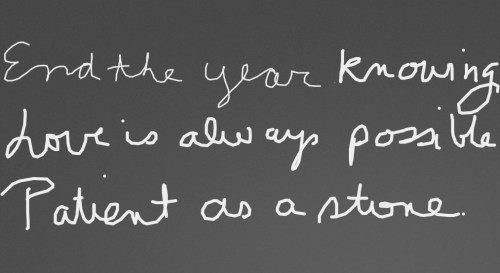 End the year knowing
Love is always possible
Patient as a stone.